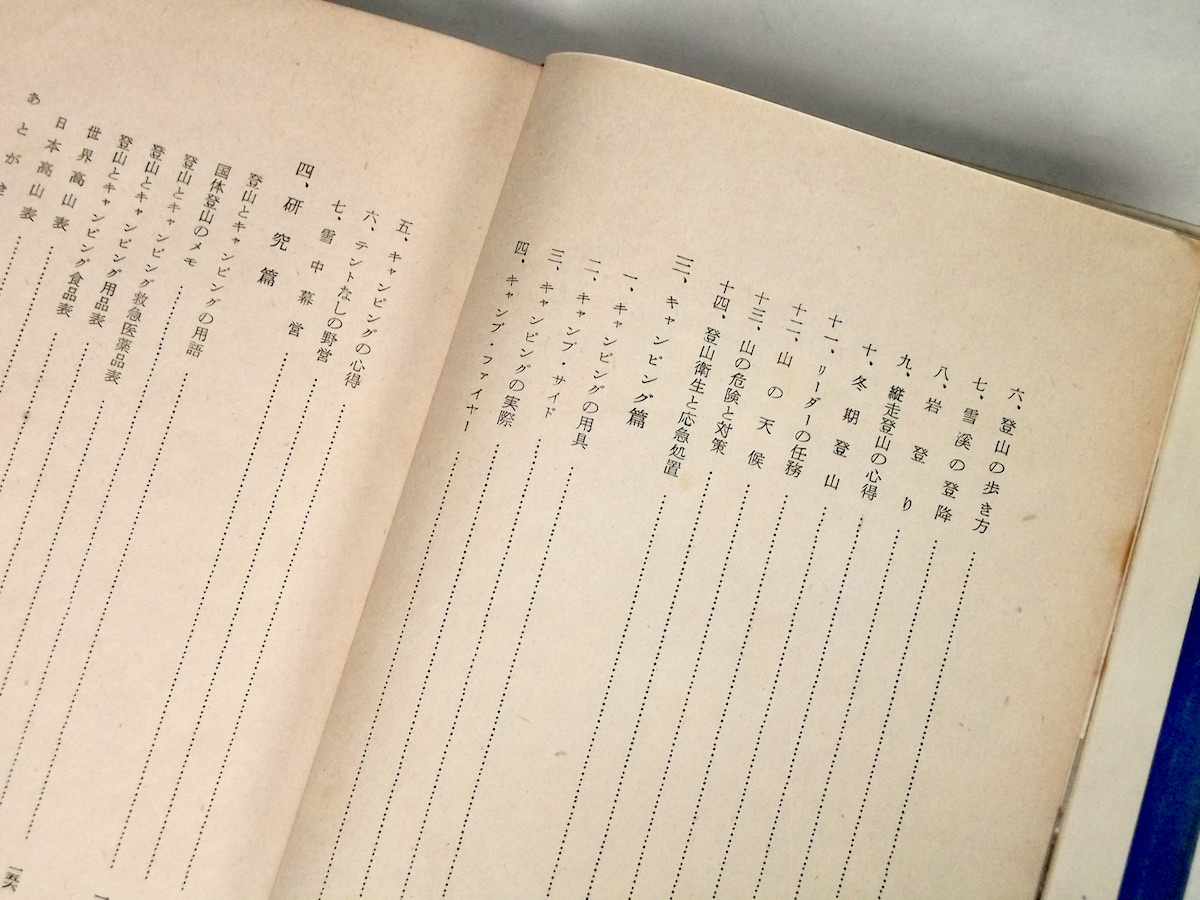 六、登山の歩き方
七、雪溪の登降
八、岩登り
九、縦走登山の心得
十、冬期登山
十一、リーダーの任務
十二、山の天候
十三、山の危険と対策
十四、登山衛生と応急処置
三、キャンピング篇
一、キャンピングの用具
二、キャンプ・サイド
三、キャンピングの実際
四、キャンプ・ファイヤー
五、キャンピングの心得
六、テントなしの野営
七、雪中幕営
四、研究篇
登山とキャンピングの用語
国体登山のメモ
登山とキャンピング救急医薬品表
登山とキャンピング用品表
登山とキャンピング食品表
世界高山表
日本高山表
あとがき
一五六